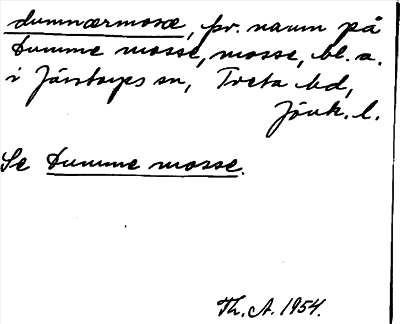 dumnærmosæ, fsv. namn på
Dumme mosse, mosse, bl. a.
i Järstorps sn, Tveta hd,
Jönk. l.
Se Dumme mosse.
Th. A. 1954.